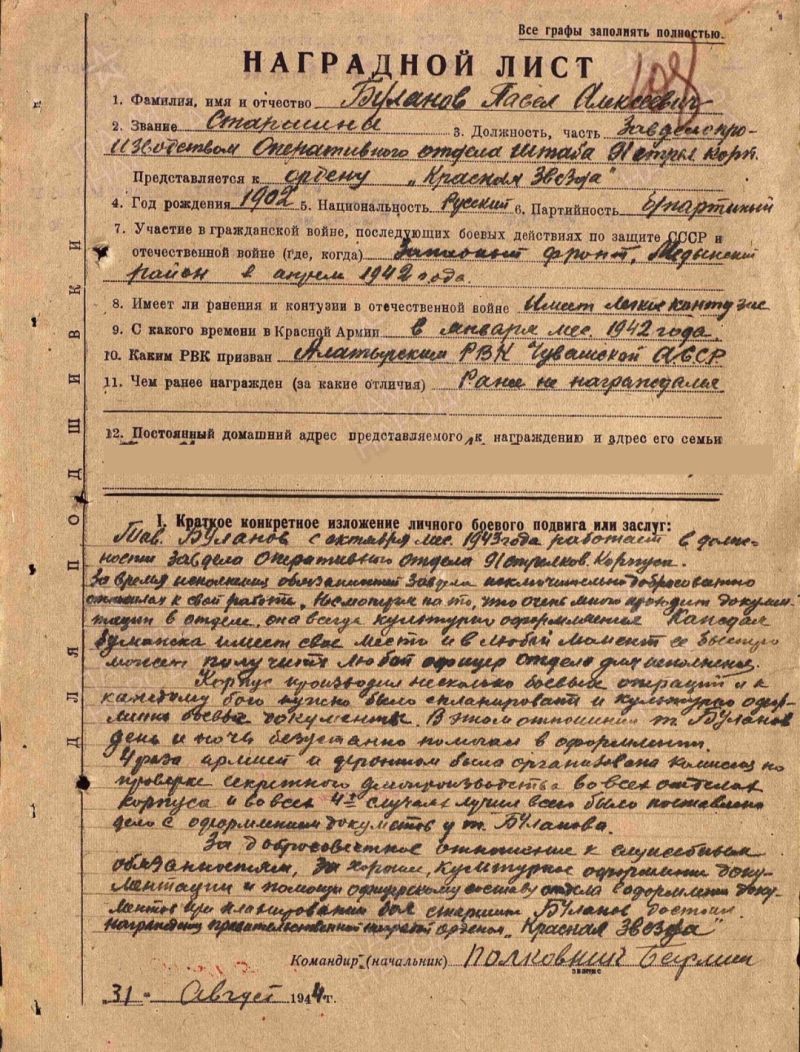 Все графы заполнять полностью.
108
НАГРАДНОЙ ЛИСТ
1. Фамилия, имя и отчество Буланов Павел Алексеевич
2. Звание Старшины 3. Должность, часть Завделопро-
изводством Оперативного отдела штаба 91 стрел. корп.
Представляется к ордену „Красная Звезда"
4. Год рождения 1902 5. Национальность Русский 6. Партийность б/партийный
7. Участие в гражданской войне, последующих боевых действиях по защите СССР и
отечественной войне (где, когда) Западный фронт, Медынский
район в апреле 1942 года.
8. Имеет ли ранения и контузии в отечественной войне Имеет легкое контузие
9. С какого времени в Красной Армии с января мес. 1942 года.
10. Каким РВК призван Алатырским РВК Чувашской АССР
11. Чем ранее награжден (за какие отличия) Ранее не награждался
12. Постоянный домашний адрес представляемого к награждению и адрес его семьи
I. Краткое конкретное изложение личного боевого подвига или заслуг:
Тов. Буланов с октября мес. 1943 года работает в долж-
ности Завдела оперативного отдела 91 стрелков. Корпуса.
За время исполнения обязанностей Завдела исключительно добросовестно
к своей работе. Несмотря на то, что очень много проходит докумен-
тации в отделе, она всегда культурно оформлена. Каждая
бумажка имеет свое место и в любой момент ее быстро
может получить любой офицер отдела для исполнения.
Корпус производил несколько боевых операций и к
каждому бою нужно было спланировать и культурно офор-
мить боевые документы. В этом отношении т. Буланов
день и ночь безустанно помогал в оформлении.
4 раза армией и фронтом была организована комиссия по
проверке секретного делопроизводства во всех отделах
корпуса и во всех 4х случаях лучше всего было поставлено
дело с оформлением документов у т. Буланова.
За добросовестное отношение к служебным
обязанностям, за хорошее, культурное оформление доку-
ментации и помощи офицерскому составу отдела в оформлении доку-
ментов при планировании боя старшина Буланов достоин
награждения правительственной наградой орденом „Красная Звезда"
Командир (начальник) Полковник
звание
„31" Август 1944 г.
ДЛЯ ПОДШИВКИ